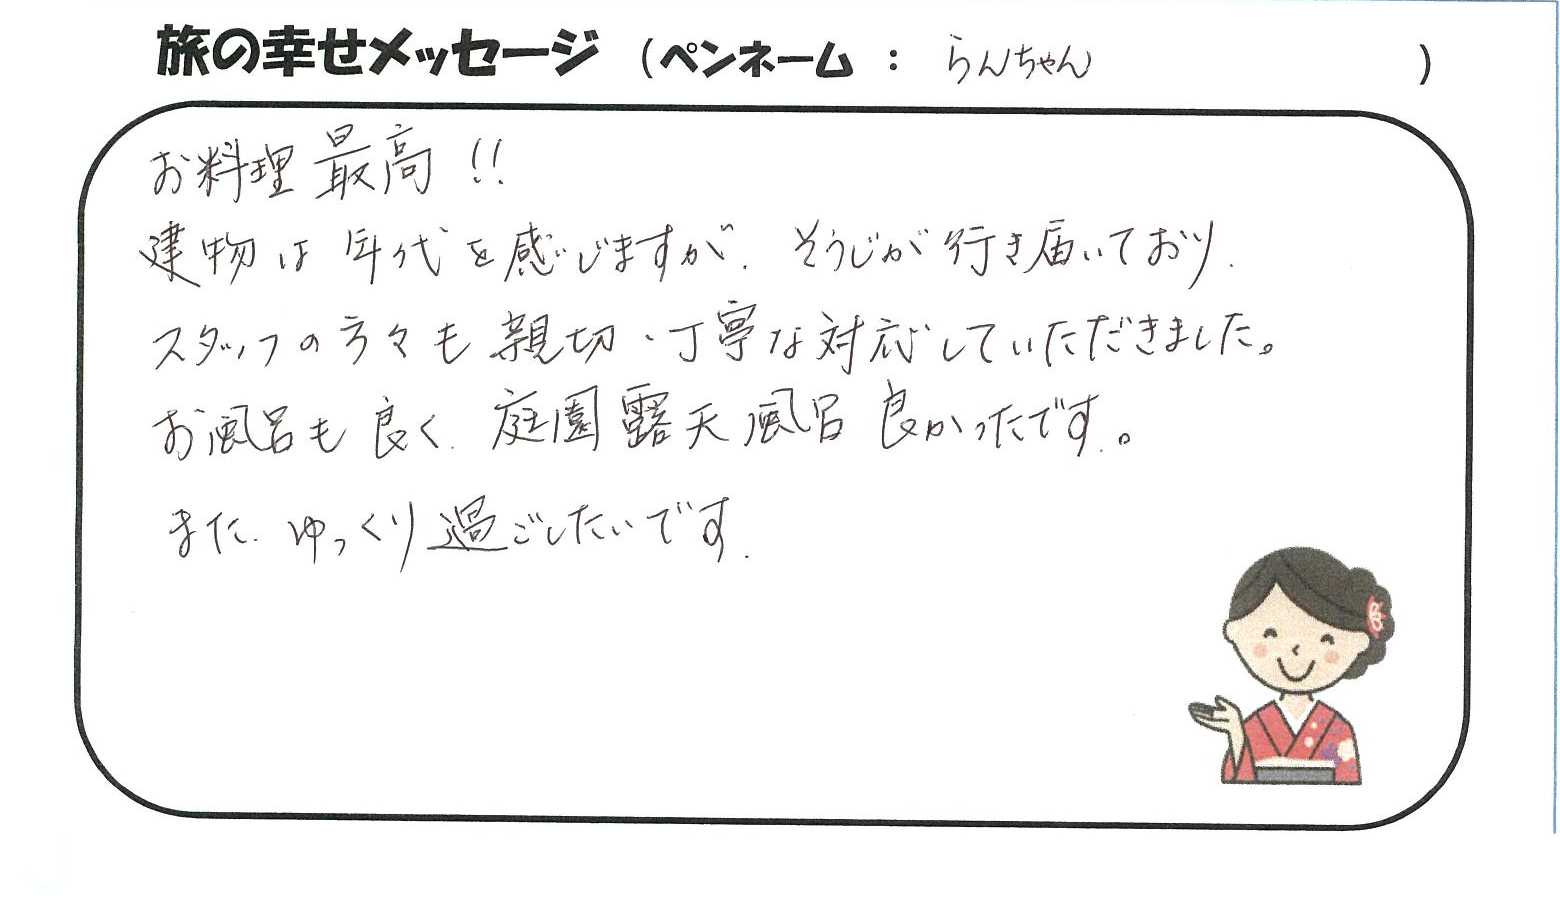 旅の幸せメッセージ（ペンネーム：らんちゃん）
お料理最高!!
建物は年代を感じますが、そうじが行き届いており、
スタッフの方々も親切・丁寧な対応していただきました。
お風呂も良く、庭園露天風呂良かったです。
また、ゆっくり過ごしたいです。